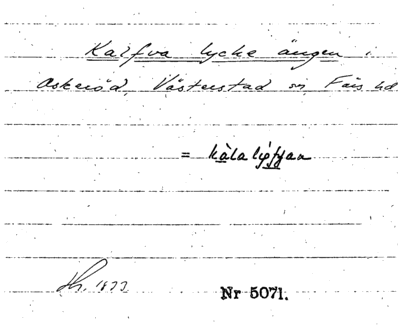 Kalfva lycke ängen i
Askeröd, Västerstad sn Färs hd
= kàlalýffan
1877
Nr 5071.